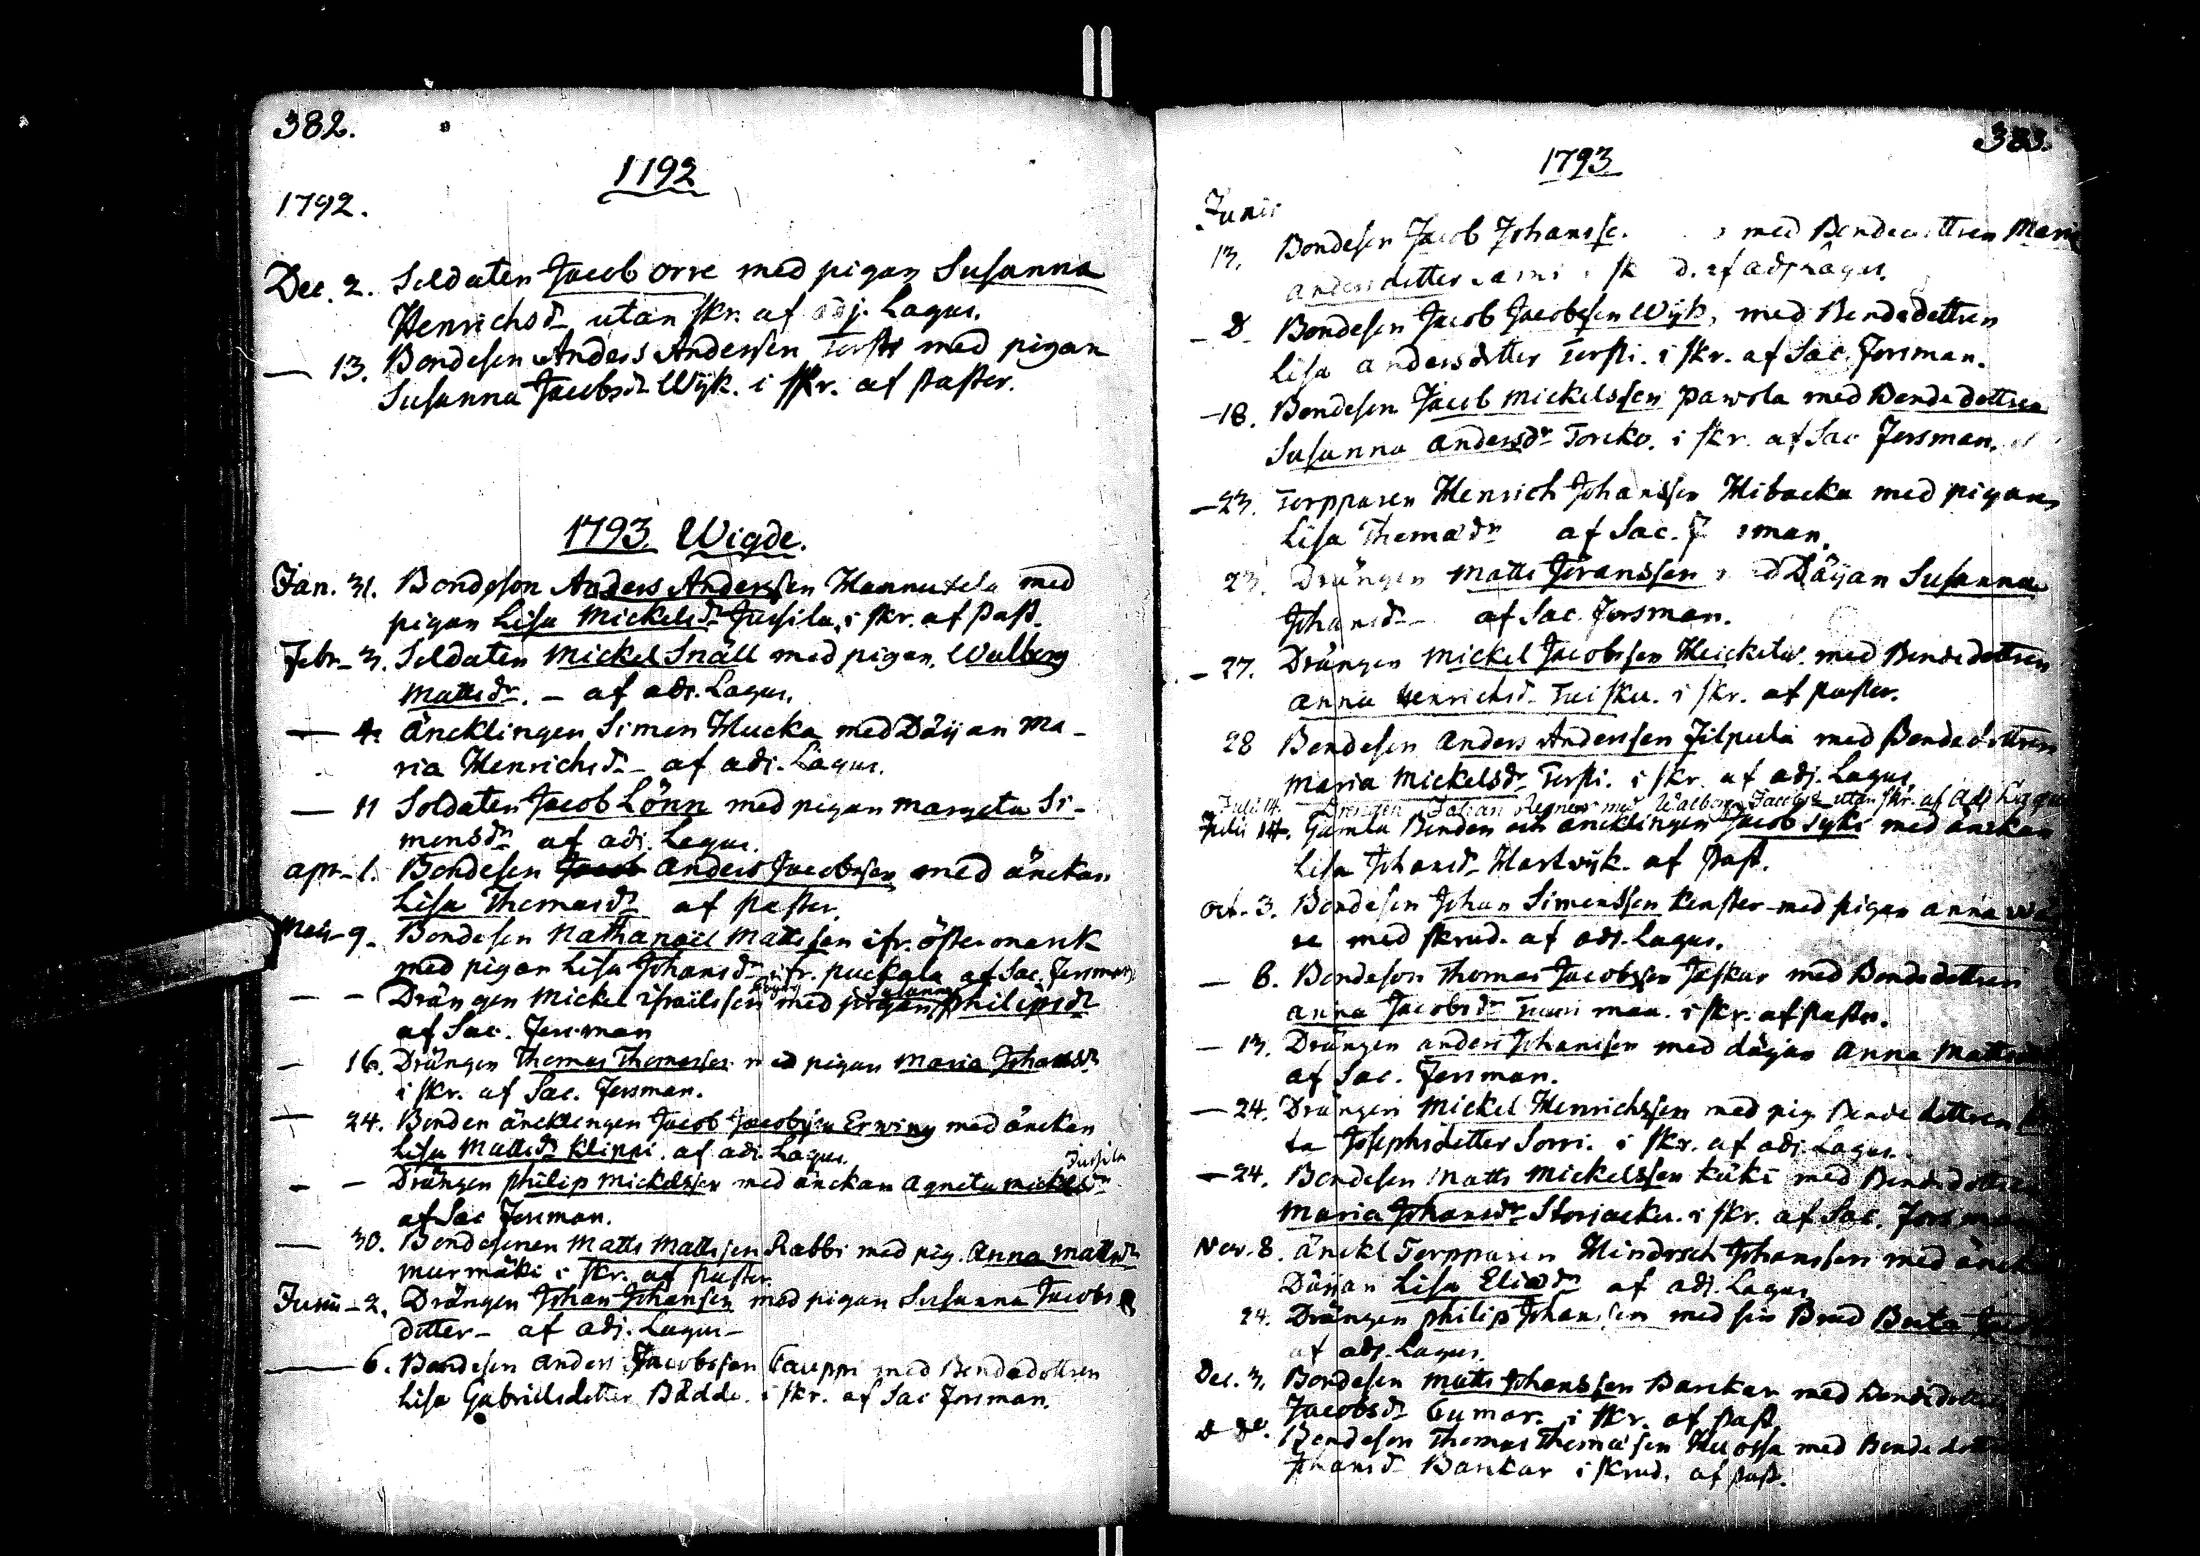 382.
1192
1792.
Dec. 2. Soldaten Jacob Orre med pigan Susanna
Henrichsdr utan skr. af adj. Lagus.
— 13. Bondeson Anders Anderssen Torsti med pigan
Susanna Jacobsdr Wijk. i skr. af Pastor.
1793 Wigde.
Jan. 31. Bondeson Anders Anderssen Hannutela med
pigan Lisa Mickelsdr Jussila, i skr. af Past.
Febr. 3. Soldaten Mickel Snäll med pigan Walborg
Mattsdr. – af adj. Lagus.
— 4. Äncklingen Simon Hucka med Däijan Ma-
ria Henrichsdr – af adj. Lagus.
— 11 Soldaten Jacob Lönn med pigan Margeta Si-
monsdr af adj. Lagus.
Apr. 1. Bondesen Jacob Anders Jacobssen med änckan
Lisa Thomasdr af Pastor.
Maii 9. Bondesen Nathanaël Mattssen ifr. Östermark
med pigan Lisa Johansdr ifr. Puckala af Sac. Forsman.
— – Drängen Mickel Israëlssen med pigan Susanna Philipsdr
af Sac. Forsman
— 16. Drängen Thomas Thomassen med pigan Maria Johansdr
i skr. af Sac. Forsman.
— 24. Bonden äncklingen Jacob Jacobssen Erwing med änckan
Lisa Mattsdr Klippi. af adj. Lagus.
Jussila
– – Drängen Philip Mickelssen med änckan Agneta Mickelsdr
af Sac Forsman.
— 30. Bondesonen Matts Mattssen Rabbi med pig. Anna Mattsdr
Murmäki i skr. af Pastor.
Junii – 2. Drängen Johan Johansen med pigan Susanna Jacobs
dotter – af adj. Lagus –
— 6. Bondesen Anders Jacobssen Cauppi med Bondedottren
Lisa Gabrielsdotter Bådde. i skr. af Sac Forsman.
383.
1793
Junii
13. Bondesen Jacob Johansse. med Bondedottren Mari
Andersdotter i sk af adj Lagus.
– D– Bondesen Jacob Jacobssen Wijk, med Bondedottren
Lisa Andersdotter Torsti. i skr. af Sac. Forsman.
–18. Bondesen Jacob Mickelssen Pawola med Bondedottren
Susanna Andersdr Torcko. i skr. af Sac Forsman.
–23. Torpparen Henrich Johanssen Hibacka med pigan
Lisa Thomasdr af Sac. F rsman.
23. Drängen Matts Göranssen med Däijan Susanna
Johansdr – af Sac. Forsman.
– 27. Drängen Mickel Jacobssen Heickela. med Bondedottren
Anna Henrichsdr Tuisku. i skr. af Pastor.
28 Bondesen Anders Anderssen Filpula med Bondedottren
Maria Mickelsdr Torsti. i skr. af adj. Lagus.
Julii 14. Drengen Johan Regnew med Walborg Jacobsdr utan skr. af Adj Lagus
Julii 14. Gamla Bonden och äncklingen Jacob Syki med änckan
Lisa Johansdr Hastwijk. af Past.
Oct. 3. Bondesen Johan Simonssen Kenster med pigan Anna
med skrud. af adj. Lagus.
— 6. Bondeson Thomas Jacobssen Jaskar med Bondedottren
Anna Jacobsdr i skr. af Pastor.
— 13. Drängen Anders Johanssen med däijan Anna Mattsdr
af Sac. Forsman.
— 24. Drängen Mickel Henrichssen med pig Bondedottren
ta Josephsdotter Sorri. i skr. af adj. Lagus.
— 24. Bondesen Matts Mickelssen Kuki med Bondedottren
Maria Johansdr Storjacku. i skr. af Sac. Forsman
Nov. 8. Änckl Torpparen Hindrich Johanssen med änck
Däijan Lisa Eliædr af adj. Lagus
24. Drängen Philip Johanssen med sin Brud Beata
af adj. Lagus.
Dec. 3. Bondesen Matts Johanssen Banckar med Bondedott
Jacobsdr Gumar. i skr. af Past.
D D. Bondeson Thomas Thomassen Huossa med Bondedott
Johansdr Banckar i skrud. af Past.